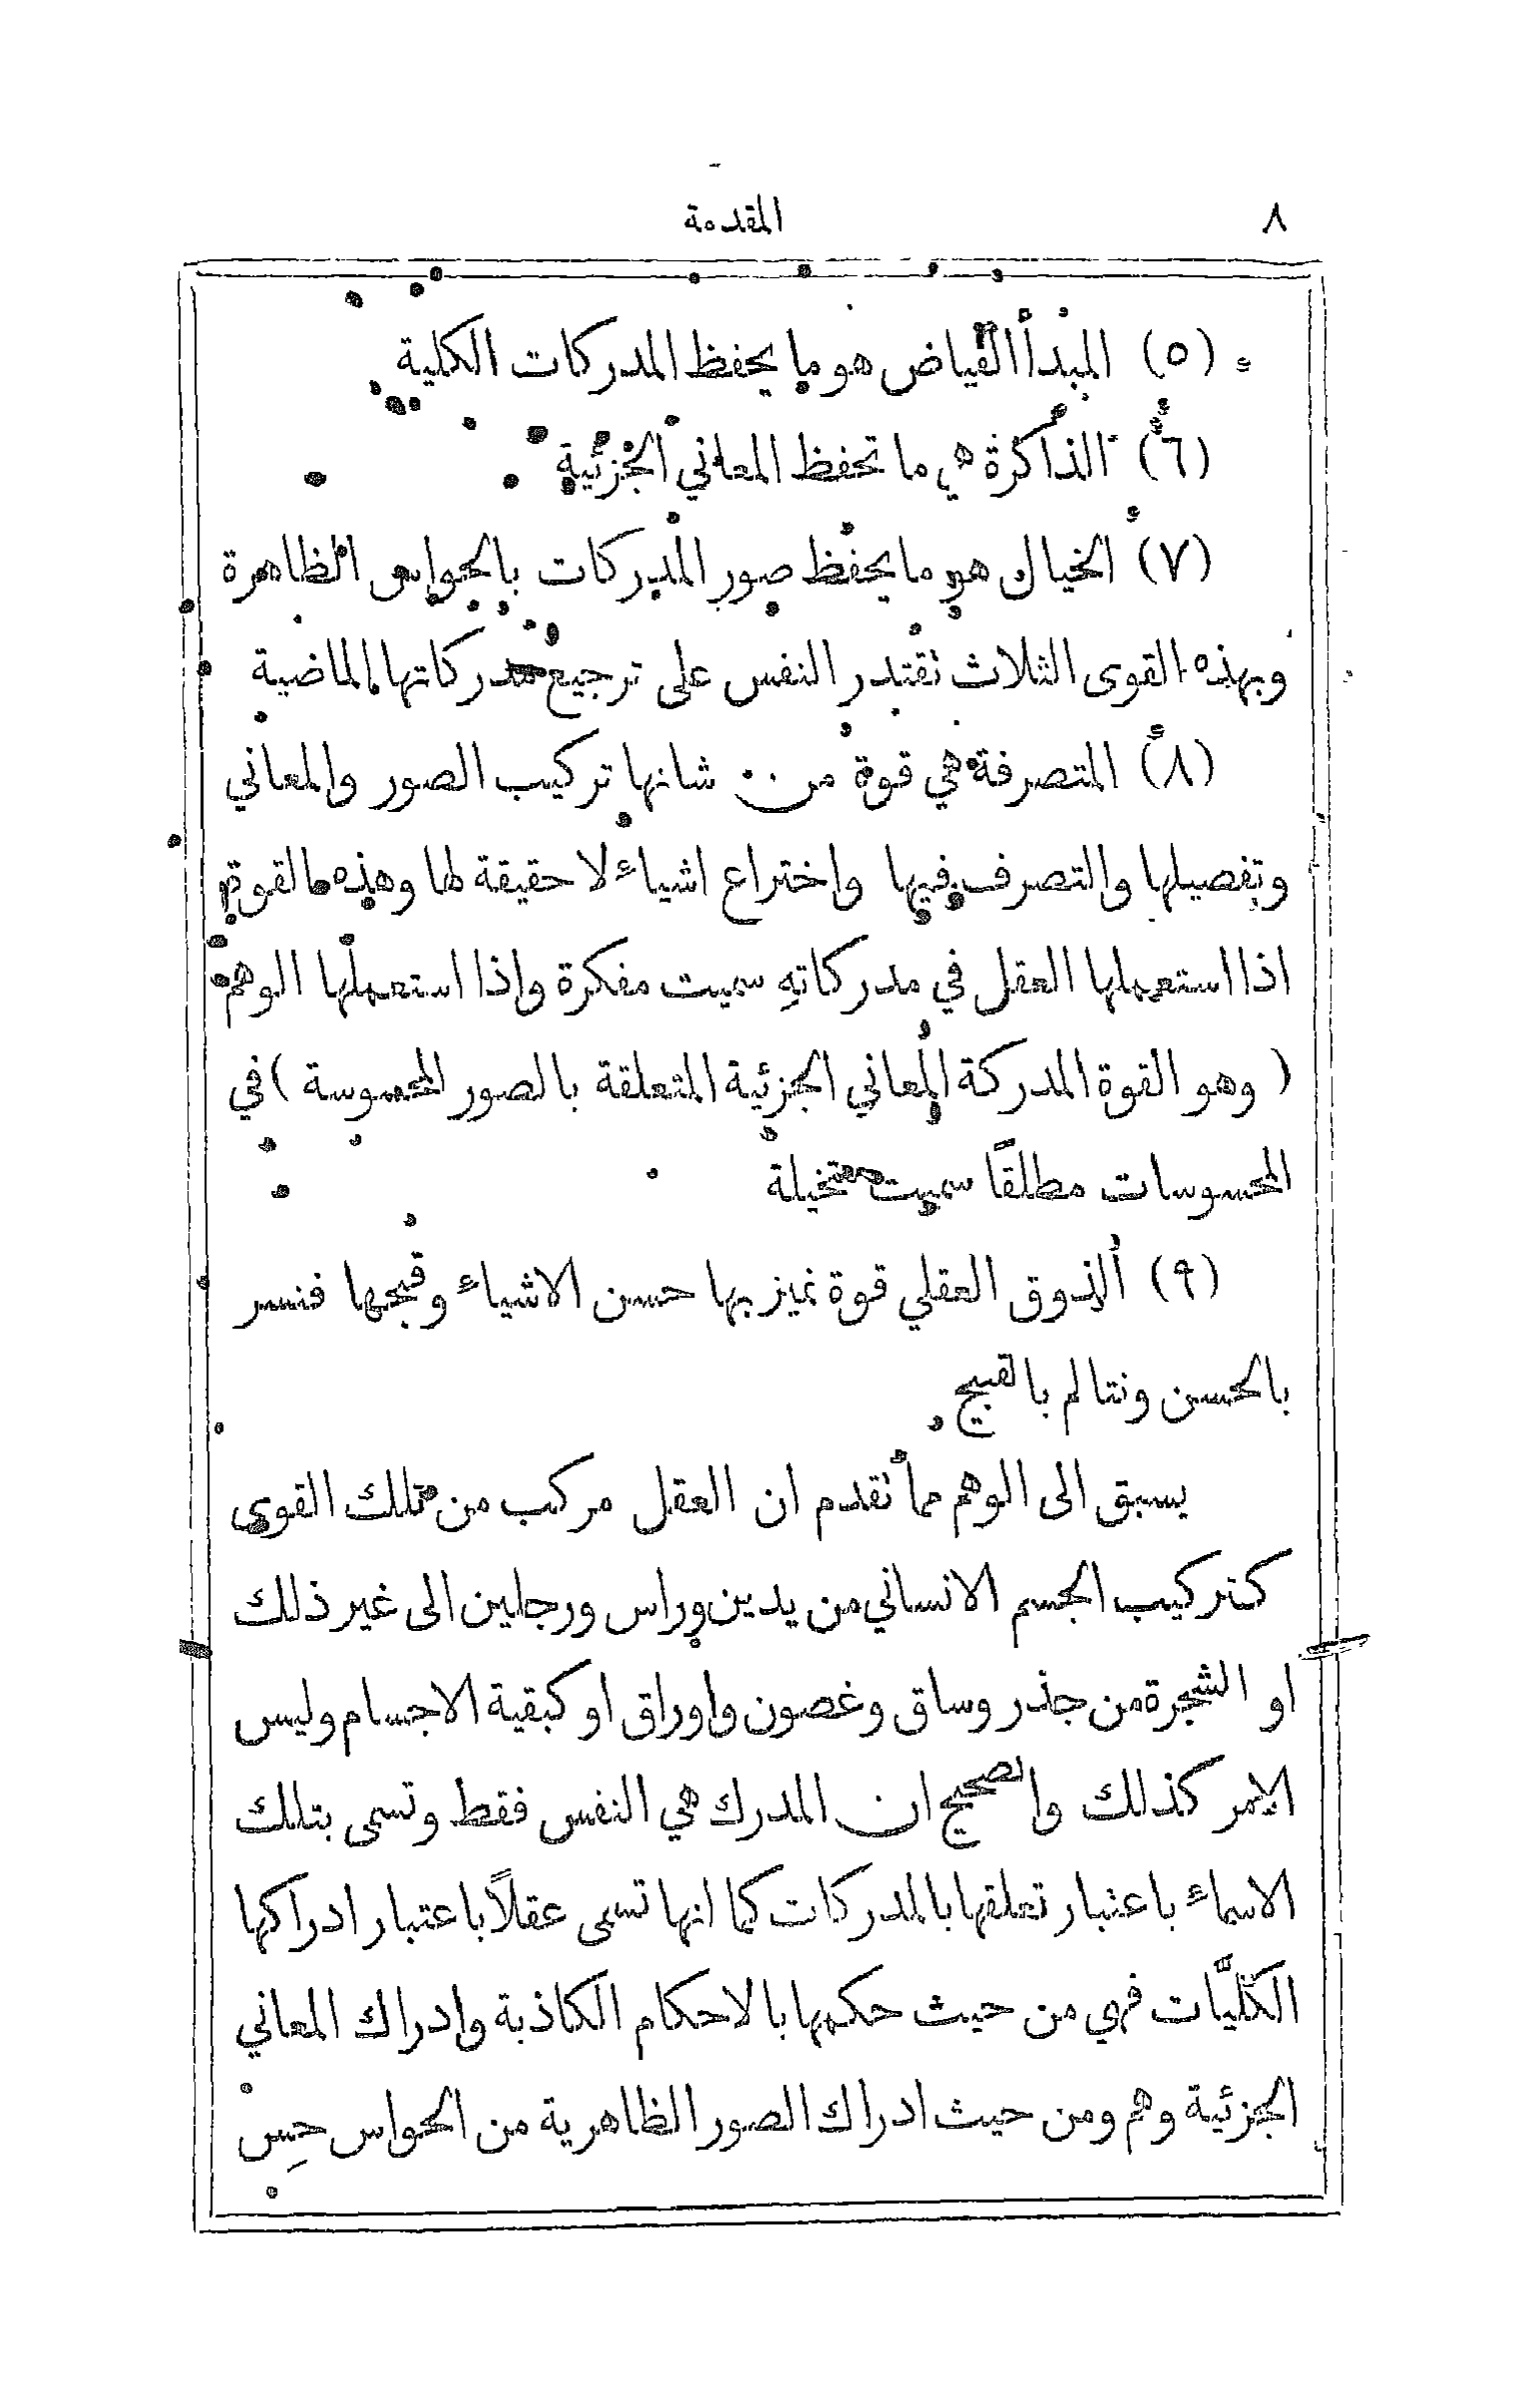 ٨ المقدمة
(٥) المبدأ الفياض هو ما يحفظ المدركات الكلية
(٦) الذاكرة هي ما تحفظ المعاني الجزئية
(٧) الخيال هو ما يحفظ صور المدركات بالحواس الظاهرة
وبهذه القوى الثلاث نقتدر النفس على ترجيع مدركاتها الماضية
(٨) المتصرفة هي قوة من شانها تركيب الصور والمعاني
وتفصيلها والتصرف فيها واختراع اشياء لا حقيقة لها وهذه القوة
اذا استعملها العقل في مدركاتهِ سميت مفكرة واذا استعملها الوهم
( وهو القوة المدركة المعاني الجزئية المتعلقة بالصور المحسوسة ) في
المحسوسات مطلقًا سميت متخيلة
(٩) الذوق العقلي قوة نميز بها حسن الاشياء وقبحها فنسر
بالحسن ونتالم بالقبيح
يسبق الى الوهم مما نقدم ان العقل مركب من تلك القوى
كتركيب الجسم الانساني من يدين وراس ورجلين الى غير ذلك
او الشجرة من جذر وساق وغصون واوراق او كبقية الاجسام وليس
الامر كذلك والصحيح ان المدرك هي النفس فقط وتسمى بتلك
الاسماء باعتبار تعلقها بالمدركات كما انها تسمى عقلاً باعتبار ادراكها
الكليَّات فهي من حيث حكمها بالاحكام الكاذبة وادراك المعاني
الجزئية وهم ومن حيث ادراك الصور الظاهرية من الحواس حِس